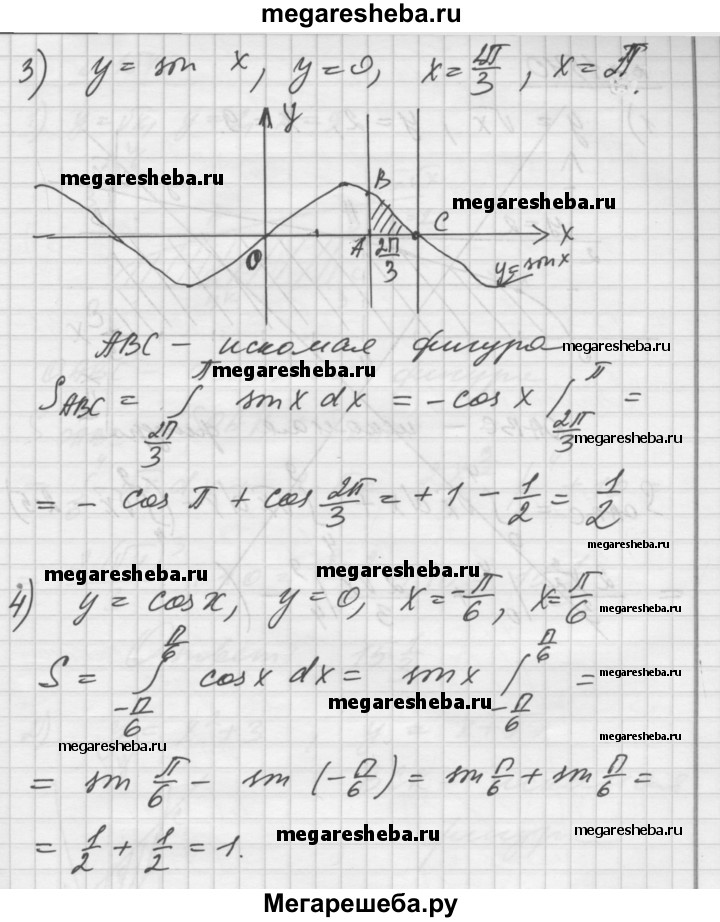 megaresheba.ru
3) y = sin x, y = 0, x = 2π/3, x = π.
y
megaresheba.ru
B
megaresheba.ru
C
x
O
A
2π/3
y = sin x
ABC – искомая фигура
megaresheba.ru
megaresheba.ru
S_ABC = ∫_{2π/3}^{π} sin x dx = - cos x |_{2π/3}^{π} =
megaresheba.ru
= - cos π + cos 2π/3 = + 1 - 1/2 = 1/2
megaresheba.ru
megaresheba.ru
megaresheba.ru
4) y = cos x, y = 0, x = -π/6, x = π/6
megaresheba.ru
S = ∫_{-π/6}^{π/6} cos x dx = sin x |_{-π/6}^{π/6} =
megaresheba.ru
megaresheba.ru
megaresheba.ru
megaresheba.ru
= sin π/6 - sin (-π/6) = sin π/6 + sin π/6 =
= 1/2 + 1/2 = 1.
megaresheba.ru
megaresheba.ru
Мегарешеба.ру